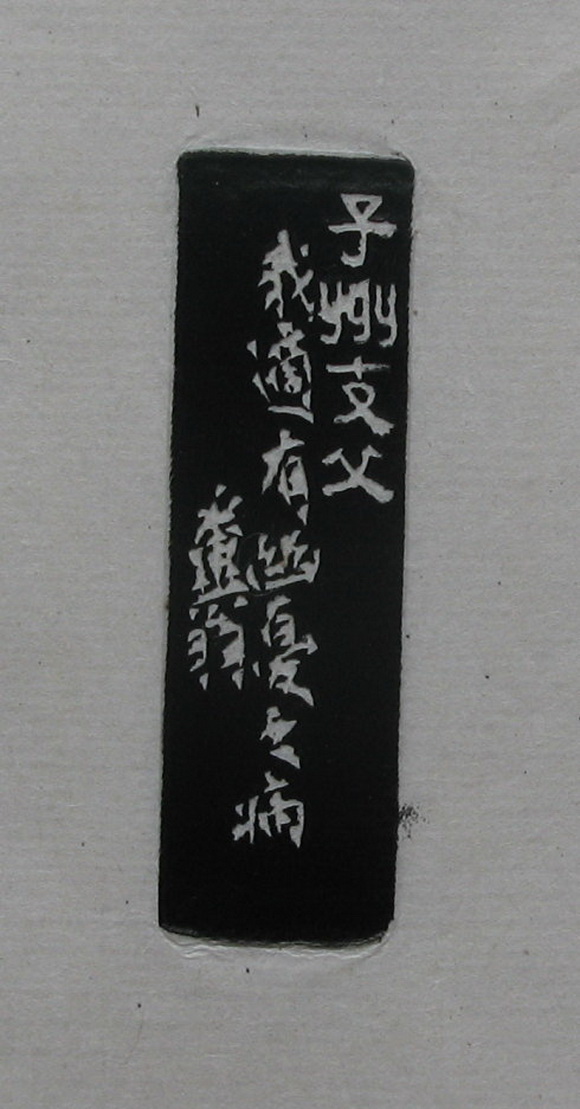 子州支父
我適有幽憂之病
糞翁